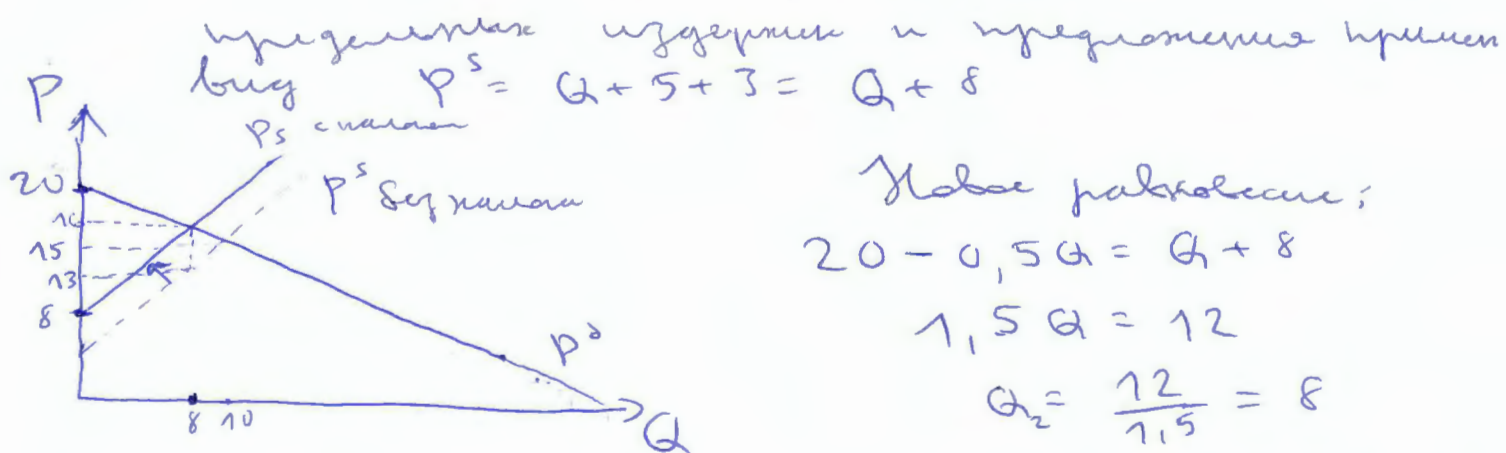 предельных издержек и предложения примет
вид P^s = Q + 5 + 3 = Q + 8
P
Ps с налогом
20
P^s без налога
16
15
13
8
P^d
8 10
Q
Новое равновесие:
20 - 0,5Q = Q + 8
1,5Q = 12
Q₂ = 12/1,5 = 8